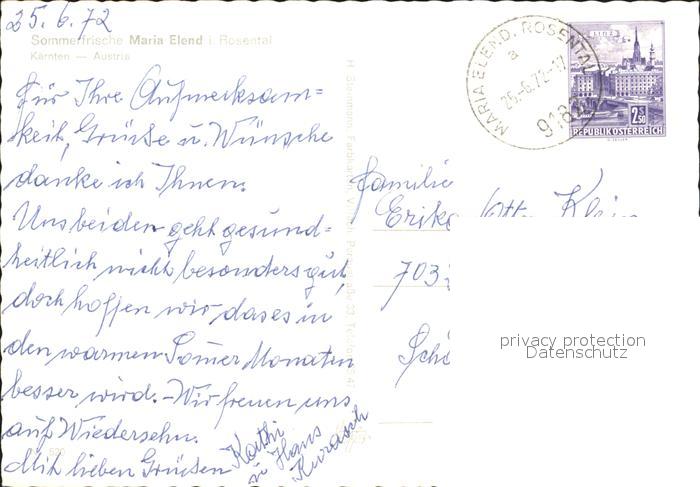 25.6.72
Sommerfrische Maria Elend i. Rosental
Kärnten — Austria
Für Ihre Aufmerksam=
keit, Grüße u. Wünsche
danke ich Ihnen.
Uns beiden geht gesund=
heitlich nicht besonders gut,
doch hoffen wir dases in
den warmen Somer Monaten
besser wird. - Wir freuen uns
auf Wiedersehn.
Mit lieben Grüßen Kathi
u Hans
Kurasch
MARIA ELEND, ROSENTAL
a
25.-6.72-17
918
LINZ
2.50
REPUBLIK ÖSTERREICH
Familie
Erika
703
Schö
privacy protection
Datenschutz